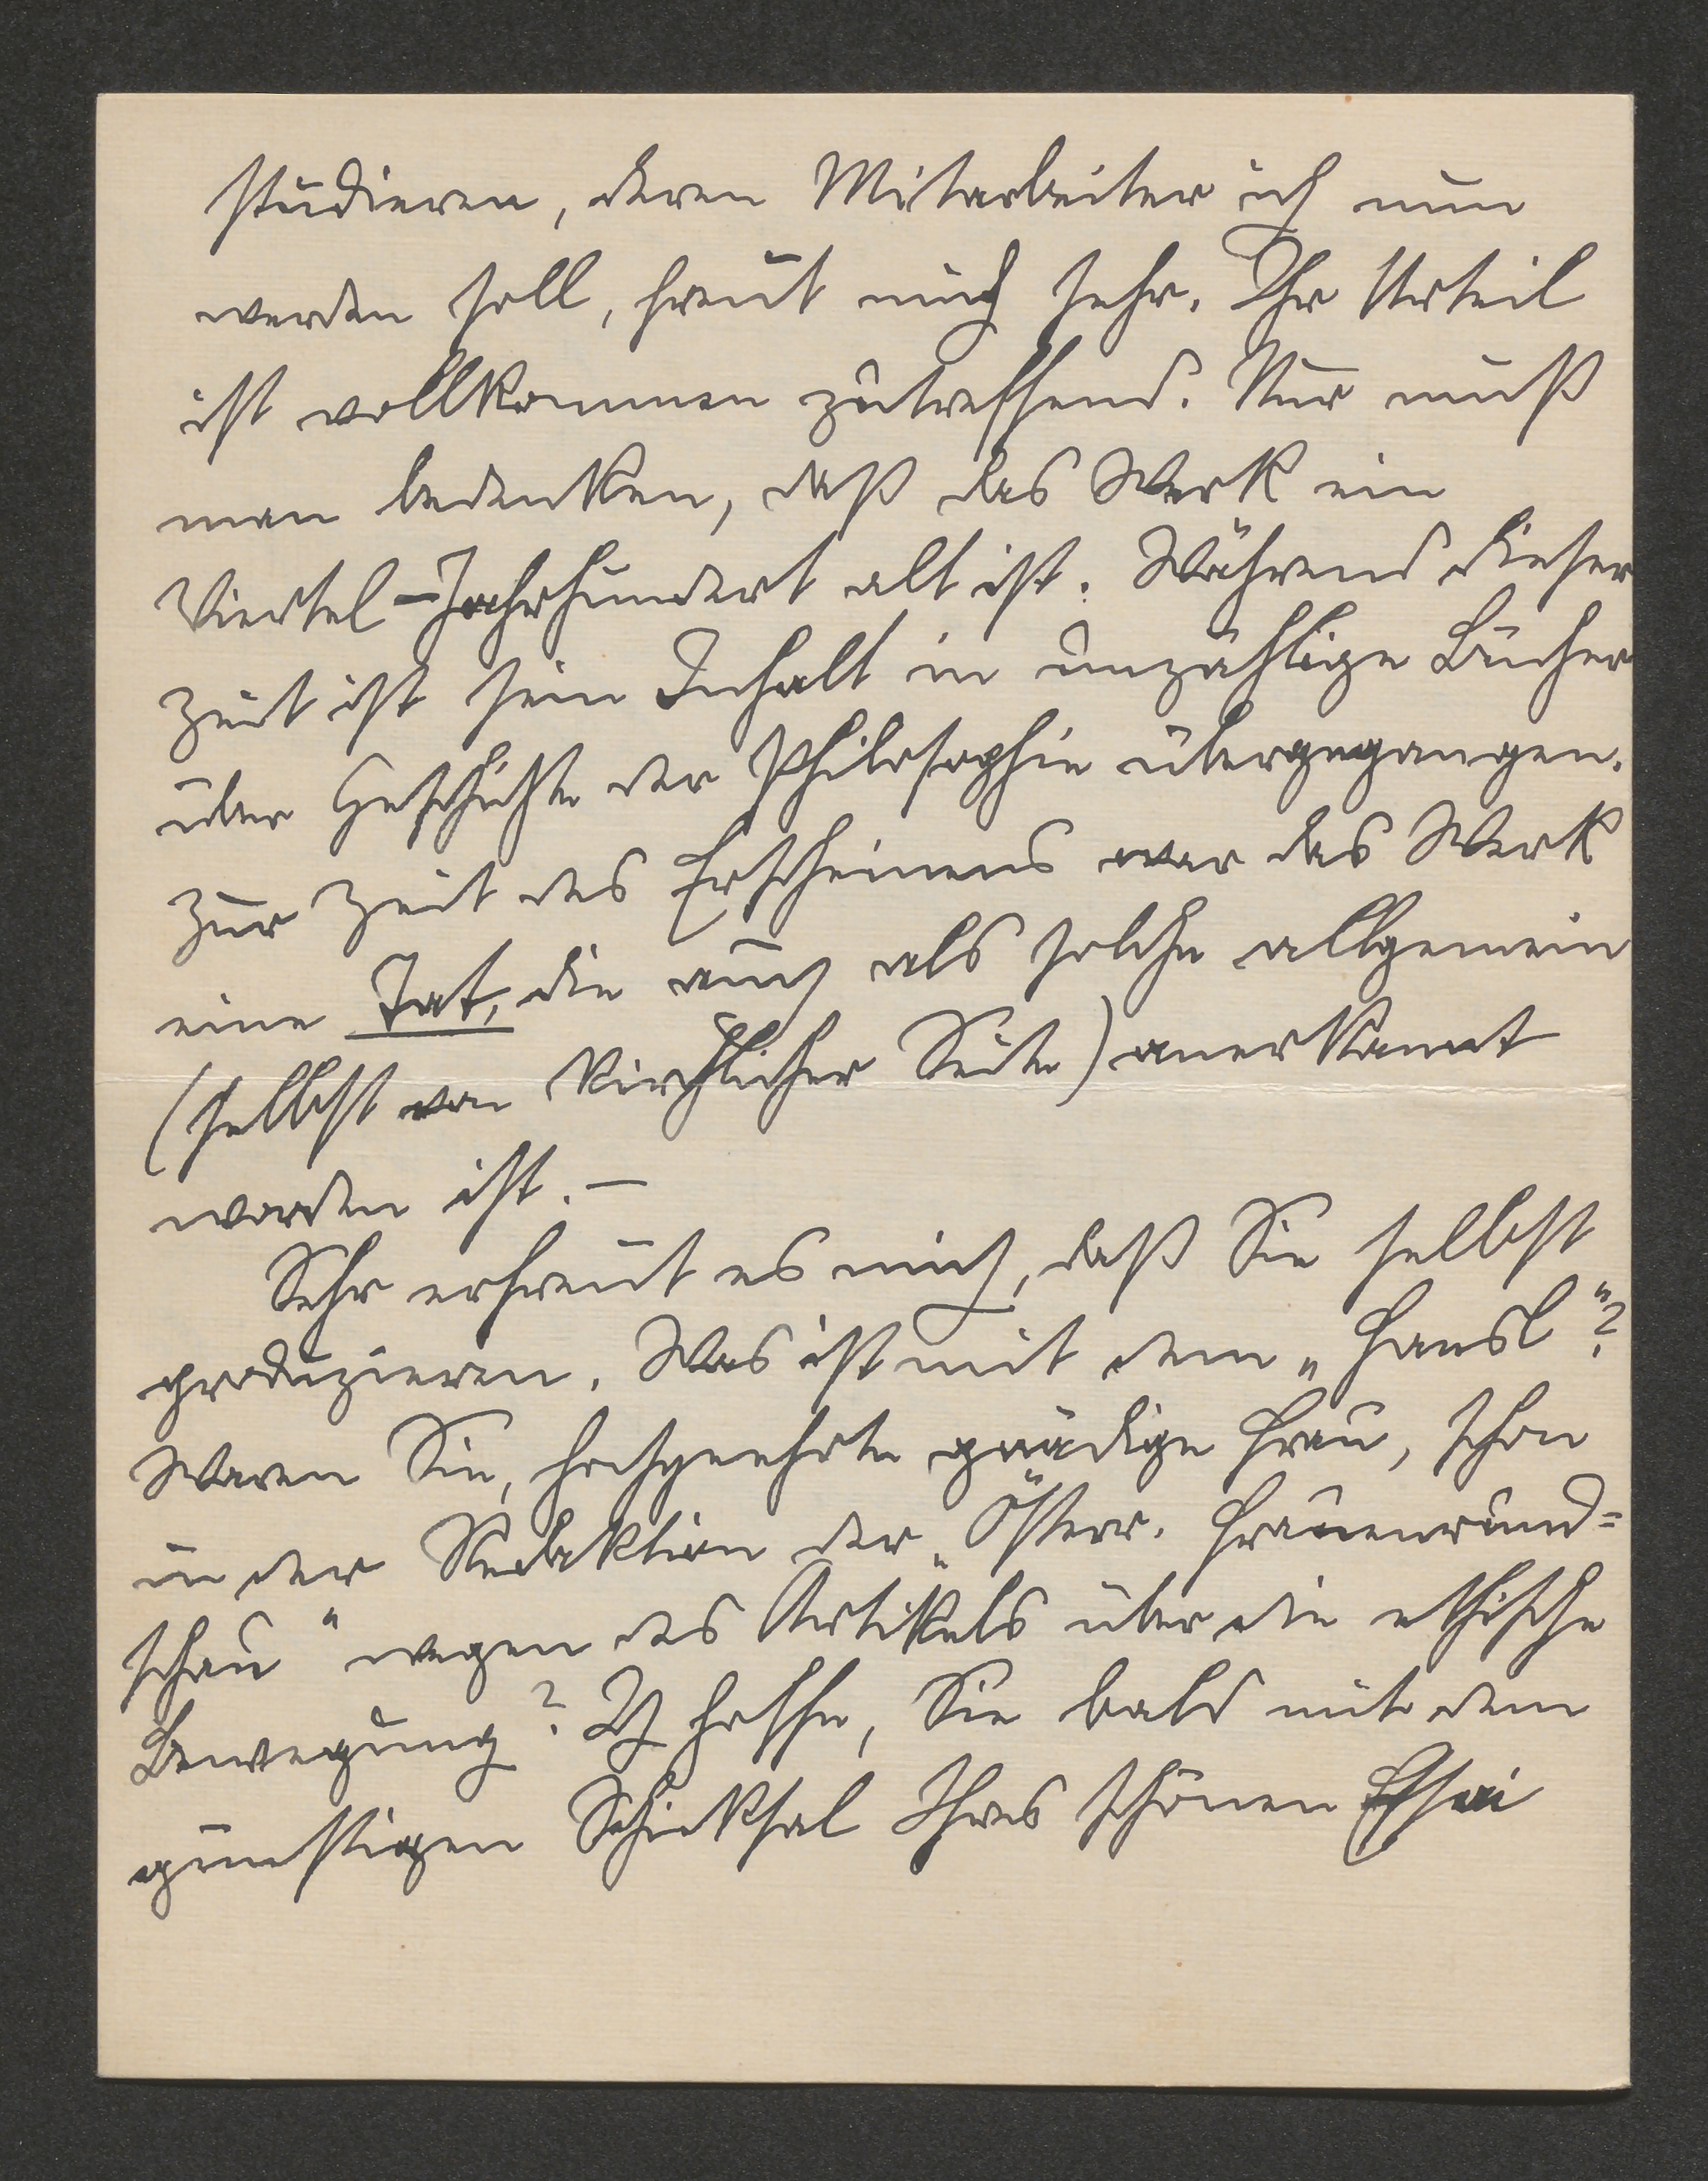 studieren, deren Mitarbeiter ich nun
werden soll, freut mich sehr. Ihr Urteil
ist vollkommen zutreffend. Nur muß
man bedenken, daß das Werk ein
Viertel-Jahrhundert alt ist. Während dieser
Zeit ist sein Inhalt in unzählige Bücher
über Geschichte der Philosophie übergegangen.
Zur Zeit des Erscheinens war das Werk
eine Tat, die auch als solche allgemein
(selbst von kirchlicher Seite) anerkannt
worden ist. –
Sehr erfreut es mich, daß Sie selbst
produzieren. Was ist mit dem „Hansl"?
Waren Sie, hochgeehrte gnädige Frau, schon
in der Redaktion der „Österr. Frauenrund=
schau" wegen des Artikels über die ethische
Bewegung? Ich hoffe, Sie bald mit dem
günstigen Schicksal Ihres schönen Essai